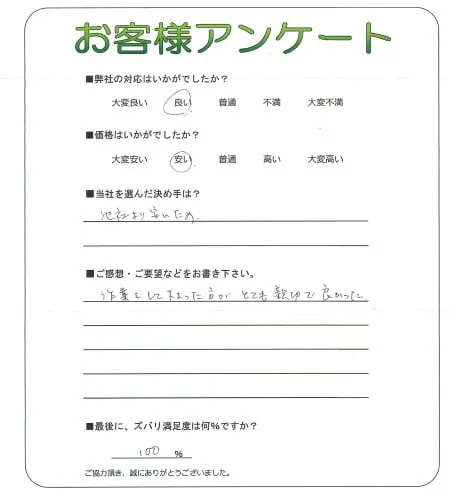 お客様アンケート
■弊社の対応はいかがでしたか？
大変良い 良い 普通 不満 大変不満
■価格はいかがでしたか？
大変安い 安い 普通 高い 大変高い
■当社を選んだ決め手は？
他社より安いため.
■ご感想・ご要望などをお書き下さい。
作業をして下さった方がとても親切で良かった
■最後に、ズバリ満足度は何%ですか？
100 %
ご協力頂き、誠にありがとうございました。